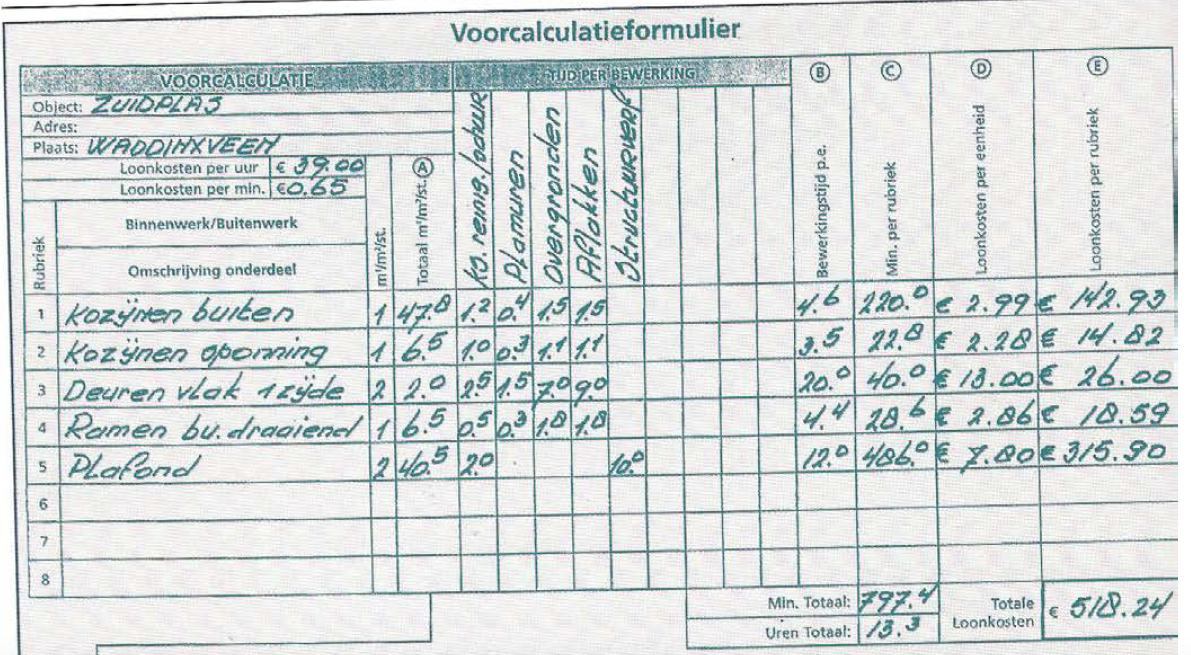 Voorcalculatieformulier
VOORCALCULATIE
TIJD PER BEWERKING
Object: ZUIDPLAS
Adres:
Plaats: WADDINXVEEN
Loonkosten per uur € 39.00
Loonkosten per min. € 0.65
Rubriek
Binnenwerk/Buitenwerk
Omschrijving onderdeel
m¹/m²/st.
Totaal m¹/m²/st. A
Ko. reinig./schuur
Plamuren
Overgronden
Aflakken
Structuurverf
B Bewerkingstijd p.e.
C Min. per rubriek
D Loonkosten per eenheid
E Loonkosten per rubriek
1 Kozijnen buiten 1 47.8 1.2 0.4 1.5 1.5 4.6 220.0 € 2.99 € 142.93
2 Kozijnen sponning 1 6.5 1.0 0.3 1.1 1.1 3.5 22.8 € 2.28 € 14.82
3 Deuren vlak 1 zijde 2 2.0 2.5 1.5 7.0 9.0 20.0 40.0 € 13.00 € 26.00
4 Ramen bu. draaiend 1 6.5 0.5 0.3 1.8 1.8 4.4 28.6 € 2.86 € 18.59
5 Plafond 2 40.5 2.0 10.0 12.0 486.0 € 7.80 € 315.90
6
7
8
Min. Totaal: 797.4
Uren Totaal: 13.3
Totale Loonkosten € 518.24